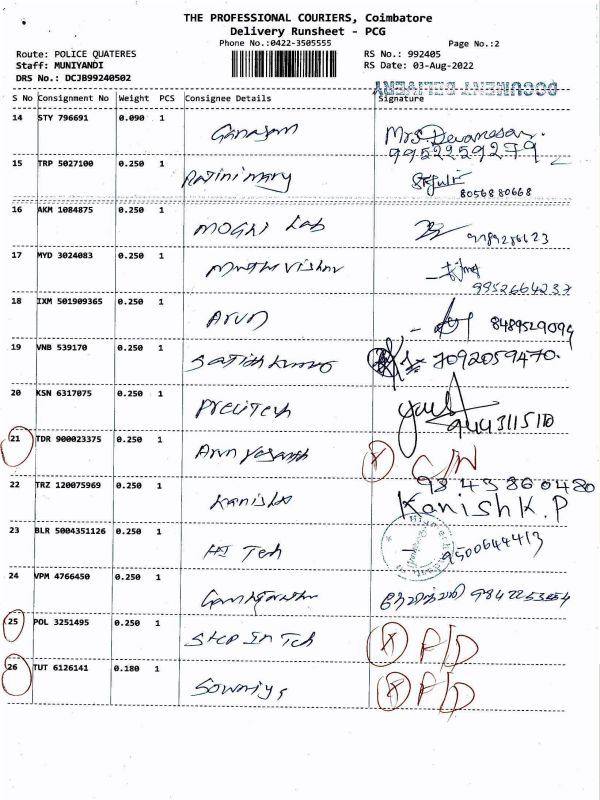 THE PROFESSIONAL COURIERS, Coimbatore
Delivery Runsheet - PCG
Phone No.:0422-3505555
Page No.:2
Route: POLICE QUATERES
RS No.: 992405
Staff: MUNIYANDI
RS Date: 03-Aug-2022
DRS No.: DCJB99240502
DOCUMENT DELIVERY
S No Consignment No Weight PCS Consignee Details Signature
14 STY 796691 0.090 1 Ganesan Mrs Devanesan.
9952259279
15 TRP 5027100 0.250 1 Rajini mary
8056880668
16 AKM 1084875 0.250 1 MOGHI Lab
17 MYD 3024083 0.250 1 Muthu Vishnu
9952664237
18 IXM 501909365 0.250 1 Arun 8489529094
19 VNB 539170 0.250 1 Satish kumar 7092059470.
20 KSN 6317075 0.250 1 Precitech
9443115110
21 TDR 900023375 0.250 1 Arun Vasanth X C/N
22 TRZ 120075969 0.250 1 Kanishk 9843860480
Kanish K.P
23 BLR 5004351126 0.250 1 HI Tech 9500644413
24 VPM 4766450 0.250 1
25 POL 3251495 0.250 1 Step In Tech X F/D
26 TUT 6126141 0.180 1 Sowmiya X F/D